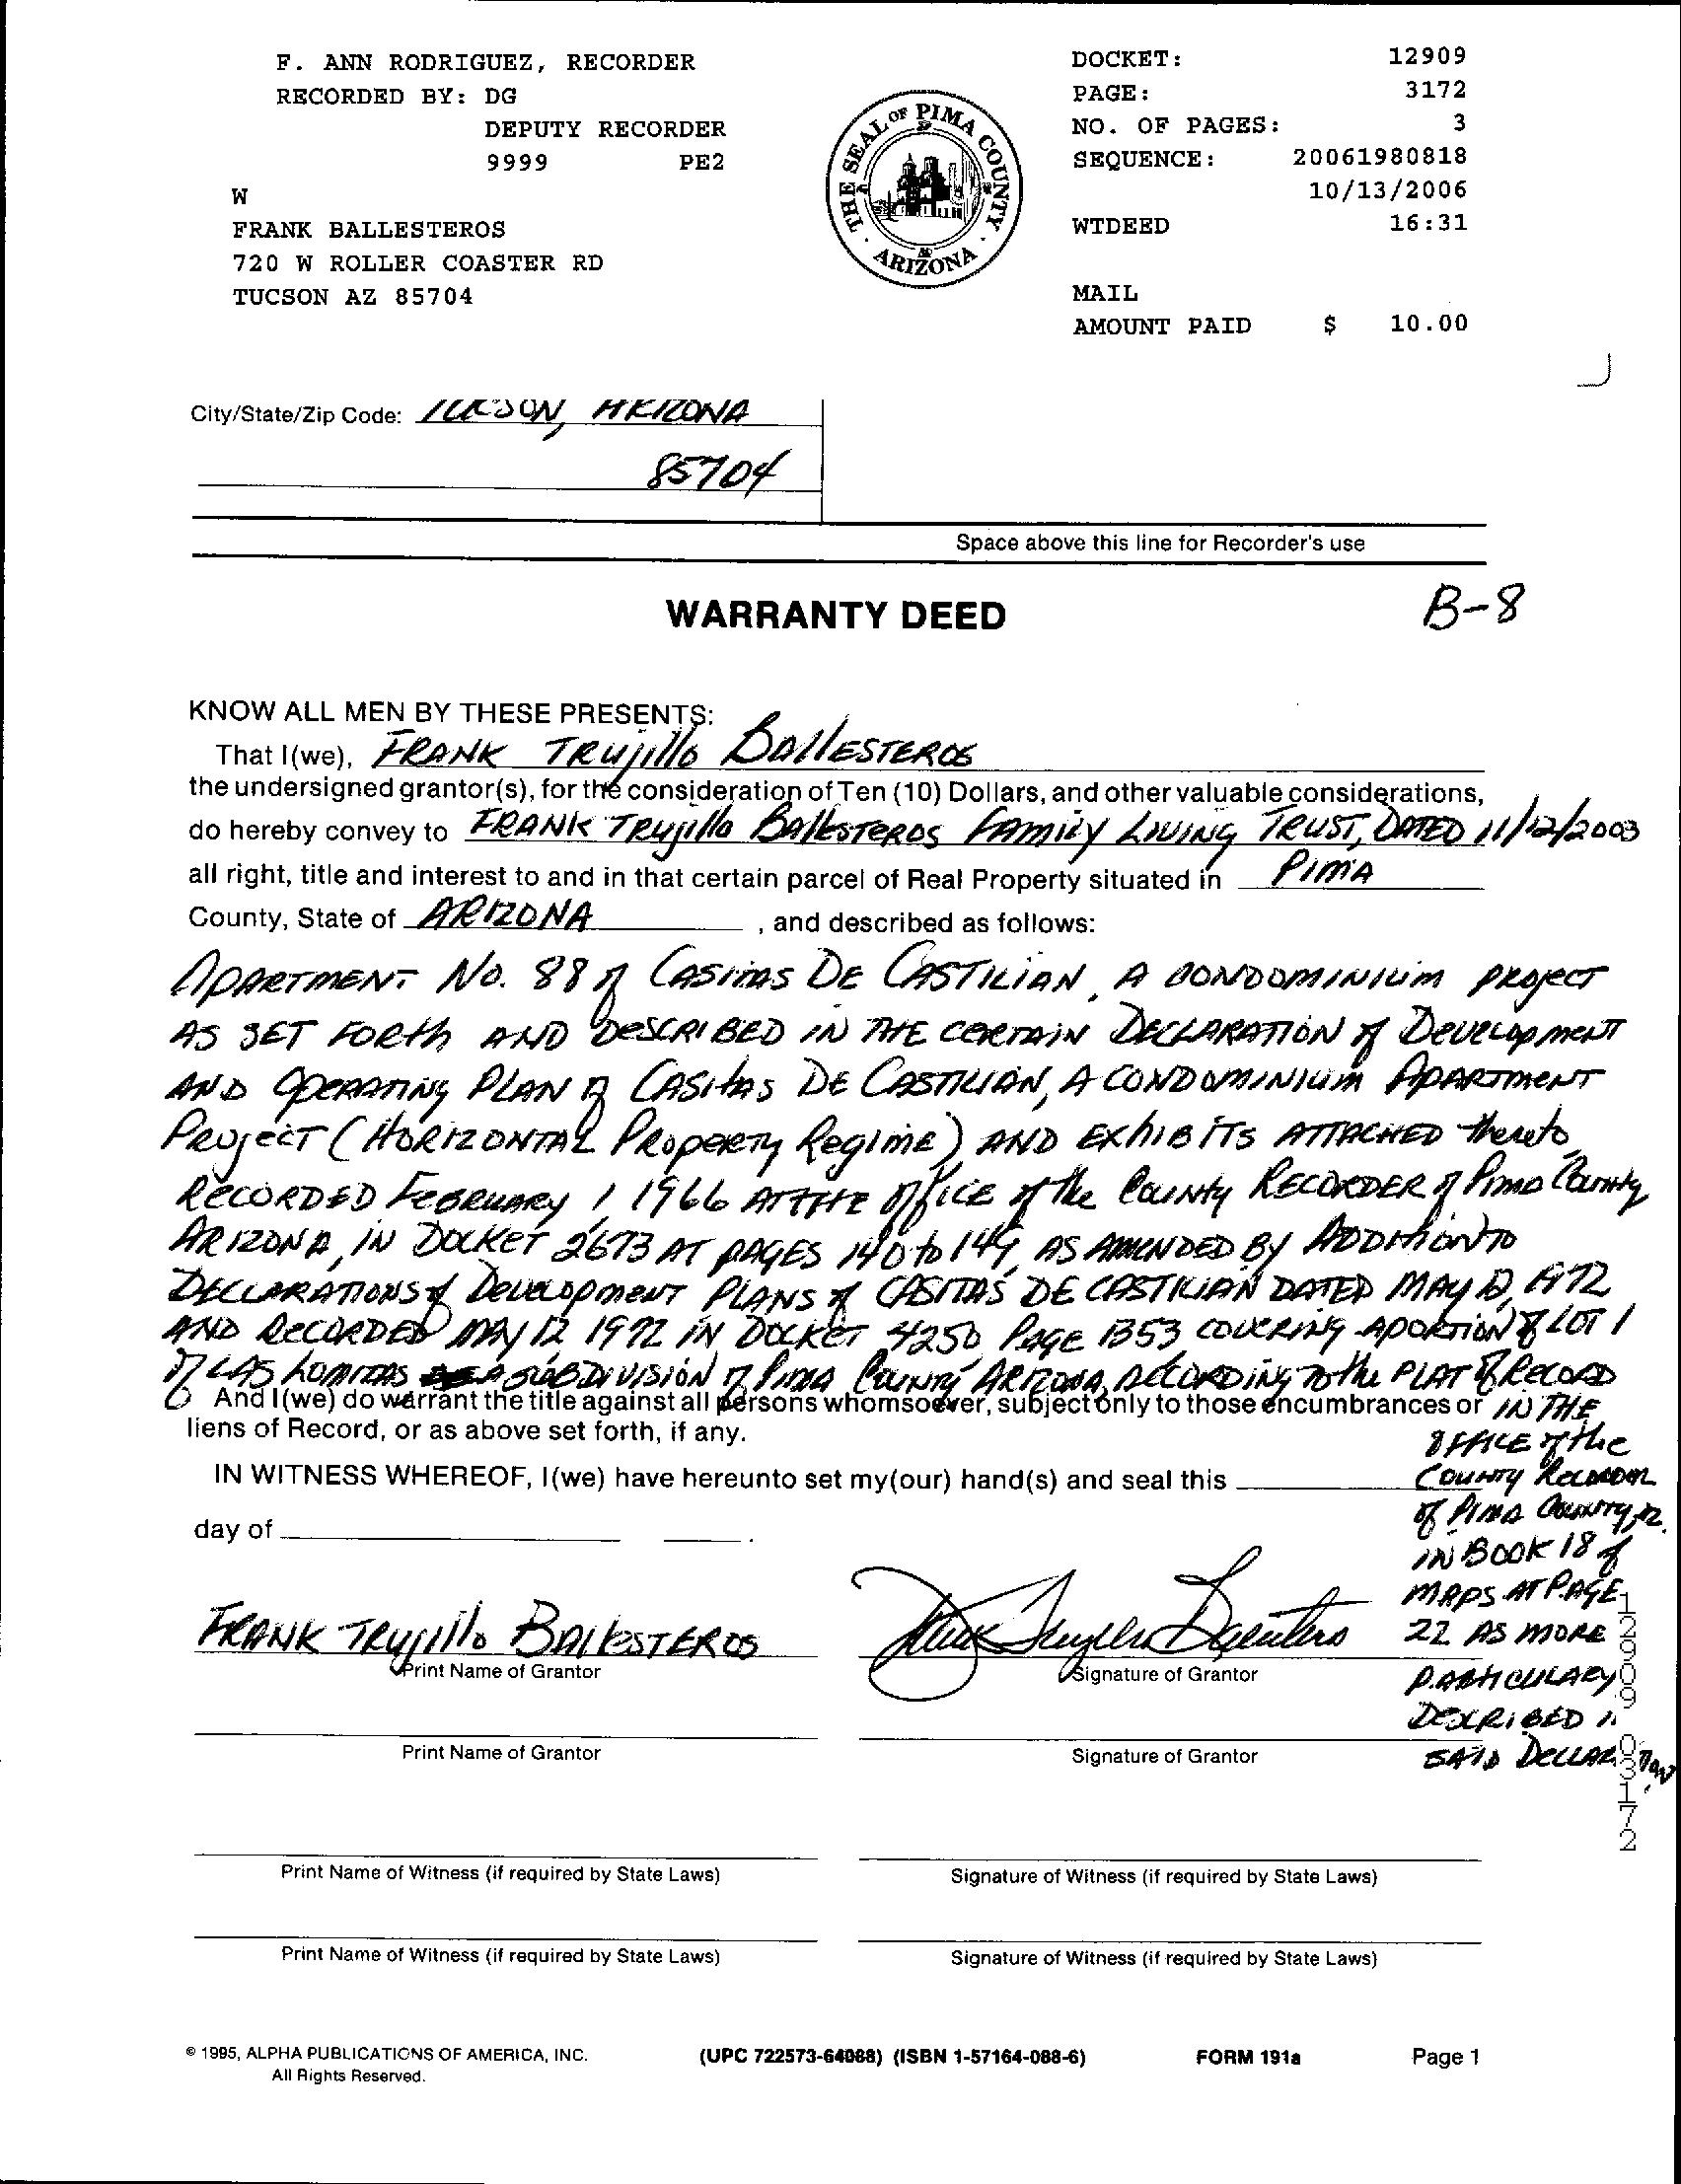 F. ANN RODRIGUEZ, RECORDER
RECORDED BY: DG
DEPUTY RECORDER
9999 PE2
W
FRANK BALLESTEROS
720 W ROLLER COASTER RD
TUCSON AZ 85704
THE SEAL OF PIMA COUNTY
ARIZONA
DOCKET: 12909
PAGE: 3172
NO. OF PAGES: 3
SEQUENCE: 20061980818
10/13/2006
WTDEED 16:31
MAIL
AMOUNT PAID $ 10.00
City/State/Zip Code: TUCSON, ARIZONA
85704
Space above this line for Recorder's use
WARRANTY DEED
B-8
KNOW ALL MEN BY THESE PRESENTS:
That I(we), FRANK TRUjillo BAllESTEROS
the undersigned grantor(s), for the consideration of Ten (10) Dollars, and other valuable considerations,
do hereby convey to FRANK TRUjillo BAllESTEROS FAMILY LIVING TRUST, DATED 11/12/2003
all right, title and interest to and in that certain parcel of Real Property situated in PIMA
County, State of ARIZONA , and described as follows:
APARTMENT No. 88 of CASITAS DE CASTILIAN, A CONDOMINIUM PROJECT
AS SET FORth AND DESCRIBED IN THE CERTAIN DECLARATION of DEVELOPMENT
AND OPERATING PLAN of CASITAS DE CASTILIAN, A CONDOMINIUM APARTMENT
PROJECT (HORIZONTAL PROPERTY REGIME) AND EXHIBITS ATTACHED thereto
RECORDED FEBRUARY 1, 1966 AT THE OFFICE of the COUNTY RECORDER of PIMA COUNTY
ARIZONA, IN DOCKET 2673 AT PAGES 140 to 149, AS AMENDED By ADDITION TO
DECLARATIONS of DEVELOPMENT PLANS of CASITAS DE CASTILIAN DATED MAY 12, 1972
AND RECORDED MAY 12 1972 IN DOCKET 4250 PAGE 1353 COVERING A PORTION of LOT 1
of LAS LOMITAS A SUBDIVISION of PIMA COUNTY ARIZONA, ACCORDING TO the PLAT of RECORD
And I(we) do warrant the title against all persons whomsoever, subject only to those encumbrances or IN THE
liens of Record, or as above set forth, if any.
OFFICE of the
IN WITNESS WHEREOF, I(we) have hereunto set my(our) hand(s) and seal this
COUNTY RECORDER
of PIMA COUNTY,
day of
IN BOOK 18 of
MAPS AT PAGE
22 AS MORE
PARTICULARY
DESCRIBED IN
SAID DECLARATION
FRANK TRUjillo BAllESTEROS
Print Name of Grantor Signature of Grantor
Print Name of Grantor Signature of Grantor
12909 03172
Print Name of Witness (if required by State Laws) Signature of Witness (if required by State Laws)
Print Name of Witness (if required by State Laws) Signature of Witness (if required by State Laws)
© 1995, ALPHA PUBLICATIONS OF AMERICA, INC. (UPC 722573-64088) (ISBN 1-57164-088-6) FORM 191a Page 1
All Rights Reserved.